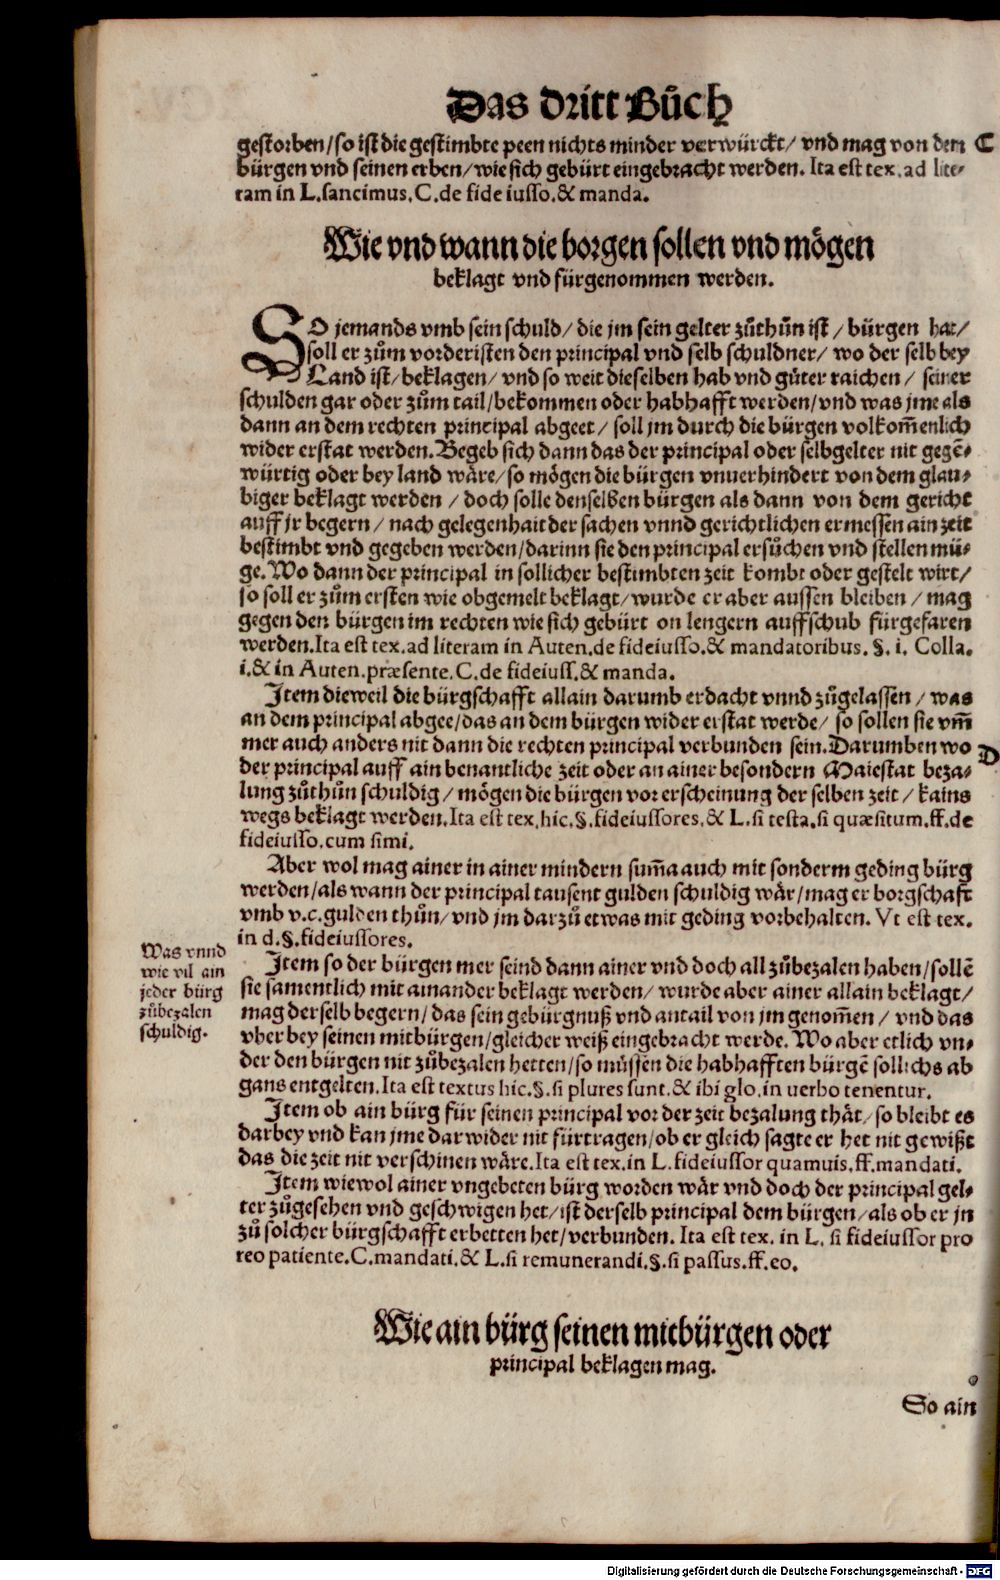 Das dritt Bůch
gestorben/so ist die gestimbte peen nichts minder verwürckt/ vnd mag von dem C
bürgen vnd seinen erben/ wie sich gebürt eingebracht werden. Ita est tex. ad lite-
ram in L. sancimus. C. de fide iusso. & manda.
Wie vnd wann die borgen sollen vnd mögen
beklagt vnd fürgenommen werden.
SO jemands vmb sein schuld/ die jm sein gelter zůthůn ist/ bürgen hat/
soll er zům vorderisten den principal vnd selb schuldner/ wo der selb bey
Land ist/ beklagen/ vnd so weit dieselben hab vnd gůter raichen/ seiner
schulden gar oder zům tail/ bekommen oder habhafft werden/ vnd was jme als
dann an dem rechten principal abgeet/ soll jm durch die bürgen volkom̃enlich
wider erstat werden. Begeb sich dann das der principal oder selbgelter nit gegẽ-
würtig oder bey land wäre/ so mögen die bürgen vnuerhindert von dem glau-
biger beklagt werden/ doch solle denselben bürgen als dann von dem gericht
auff jr begern/ nach gelegenhait der sachen vnnd gerichtlichen ermessen ain zeit
bestimbt vnd gegeben werden/ darinn sie den principal ersůchen vnd stellen mü-
ge. Wo dann der principal in sollicher bestimbten zeit kombt oder gestelt wirt/
so soll er zům ersten wie obgemelt beklagt/ wurde er aber aussen bleiben/ mag
gegen den bürgen im rechten wie sich gebürt on lengern auffschub fürgefaren
werden. Ita est tex. ad literam in Auten. de fideiusso. & mandatoribus. §. i. Colla.
i. & in Auten. præsente. C. de fideiuss. & manda.
Item dieweil die bürgschafft allain darumb erdacht vnnd zůgelassen/ was
an dem principal abgee/ das an dem bürgen wider erstat werde/ so sollen sie vm̃
mer auch anders nit dann die rechten principal verbunden sein. Darumben wo D
der principal auff ain benantliche zeit oder an ainer besondern Maiestat beza-
lung zůthůn schuldig/ mögen die bürgen vor erscheinung der selben zeit/ kains
wegs beklagt werden. Ita est tex. hic. §. fideiussores. & L. si testa. si quæsitum. ff. de
fideiusso. cum simi.
Aber wol mag ainer in ainer mindern sum̃a auch mit sonderm geding bürg
werden/ als wann der principal tausent gulden schuldig wär/ mag er borgschaft
vmb v.c. gulden thůn/ vnd jm darzů etwas mit geding vorbehalten. Vt est tex.
in d. §. fideiussores.
Was vnnd
wie vil ain
jeder bürg
zůbezalen
schuldig.
Item so der bürgen mer seind dann ainer vnd doch all zůbezalen haben/ sollẽ
sie samentlich mit ainander beklagt werden/ wurde aber ainer allain beklagt/
mag derselb begern/ das sein gebürgnuß vnd antail von jm genom̃en/ vnd das
vber bey seinen mitbürgen/ gleicher weiß eingebracht werde. Wo aber etlich vn-
der den bürgen nit zůbezalen hetten/ so můssen die habhafften bürgẽ sollichs ab
gans entgelten. Ita est textus hic. §. si plures sunt. & ibi glo. in uerbo tenentur.
Item ob ain bürg für seinen principal vor der zeit bezalung thät/ so bleibt es
darbey vnd kan jme darwider nit fürtragen/ ob er gleich sagte er het nit gewißt
das die zeit nit verschinen wäre. Ita est tex. in L. fideiussor quamuis. ff. mandati.
Item wiewol ainer vngebeten bürg worden wär vnd doch der principal gel-
ter zůgesehen vnd geschwigen het/ ist derselb principal dem bürgen/ als ob er jn
zů solcher bürgschafft erbetten het/ verbunden. Ita est tex. in L. si fideiussor pro
reo patiente. C. mandati. & L. si remunerandi. §. si passus. ff. eo.
Wie ain bürg seinen mitbürgen oder
principal beklagen mag.
So ain
Digitalisierung gefördert durch die Deutsche Forschungsgemeinschaft - DFG